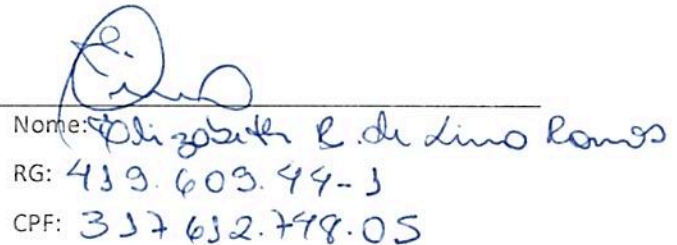 Nome: Elizabeth R. de Lima Ramos
RG: 419.609.44-1
CPF: 317 612.748.05